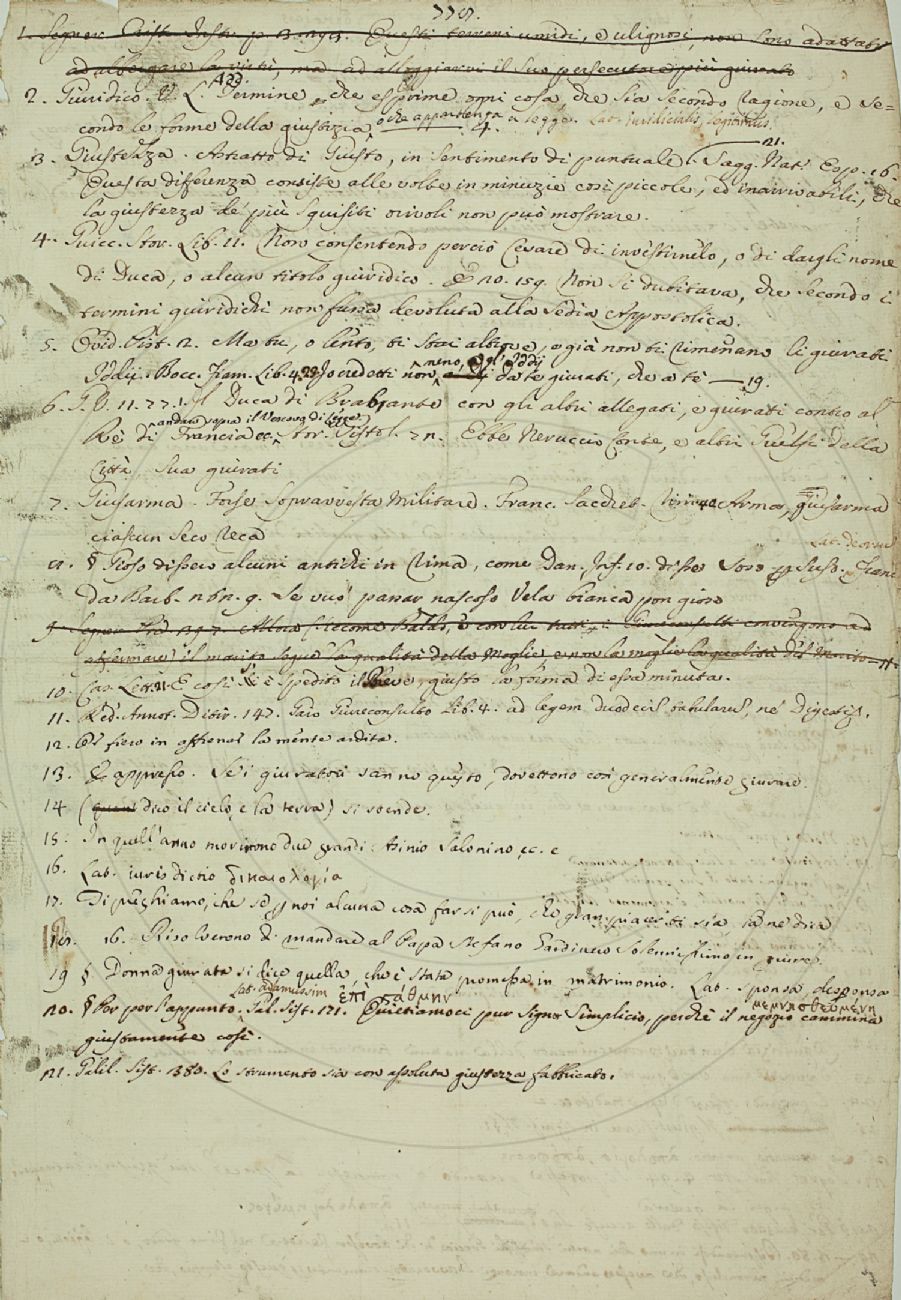 778.
1. Segner. Crist. Instr. p. 3. Questi terreni umidi, e uliginosi, non sono adattati
ad albergare la virtù, ma ad alloggiarvi il suo persecutore più giurato
2. Giuridico. V. L. Add. Termine, che esprime ogni cosa, che sia secondo ragione, e se-
condo le forme della giustizia, o che appartenga a legge. Lat. iuridicialis, legitimus.
4.
3. Giustezza. Astratto di Giusto, in sentimento di puntuale. 21. Sagg. Nat. Esp. 16.
Questa differenza consiste alle volte in minuzie così piccole, ed inarrivabili, che
la giustezza de' più squisiti orivoli non può mostrare.
4. Guicc. Stor. Lib. 11. Non consentendo perciò Cesare di investirnelo, o di dargli nome
di Duca, o alcun titolo giuridico. E 10. 159. Non si dubitava, che secondo i
termini giuridichi non fusse devoluta alla Sedia Appostolica.
5. Ovid. Pist. 12. Ma tu, o lento, ti stai altrove, e già non ti rimenano li giurati
Iddij. Bocc. Fiam. Lib. 4. Io credetti non meno, agl' Iddij da te giurati, che a te — 19.
6. G. V. 11. 77. 1. Il Duca di Brabante con gli altri allegati, e giurati contro al
Re di Francia andaro sopra il Vescovo di Legge ec. Stor. Pistol. 72. Ebbe Neruccio Conte, e altri Guelfi della
Città sua giurati
7. Giusarma. Forse Sopravvesta Militare. Franc. Sacchet. Rime Arma, giusarma
ciascun seco reca
8. § Gioso dissero alcuni antichi in rima, come Dan. Inf. 10. disse Soso per Suso. Lat. deorsum Franc.
da Barb. 262. 9. Se vuo' passar nascoso Vela bianca pon gioso
9. Segner. Pred. 197. Allora siccome Baldo, e con lui tutti i Giureconsulti convengono ad
affermare il marito segue la qualità della Moglie e non la moglie la qualità del Marito — 11.
10. Cas. Lett. 21. E così si è spedito il Breve, giusto la forma di essa minuta.
11. Red. Annot. Ditir. 147. Gaio Giureconsulto Lib. 4. ad legem duodecim tabularum, ne' Digesti.
12. fiero in affrenar la mente ardita.
13. E appresso. Se i giuratori sanno questo, dovettono così generalmente giurare.
14 (quan dico il cielo, e la terra) si vende.
15. In quell' anno morirono due grandi: Asinio Salonino, ec. e
16. Lat. iuris dictio δικαιολογία
17. Ti preghiamo, che se per noi alcuna cosa far si può, che gran piacer ti sia, ta ne dica
18. 16. Risolverono di mandare al Papa Stefano Gardineo Solennissimo in giure.
19 § Donna giurata si dice quella, che è stata promessa in matrimonio. Lat. sponsa desponsa
μεμνηστευμένη
20. § Per per l'appunto. Lat. adamussim ἐπὶ στάθμην Gal. Sist. 171. Quietiamoci pur Signor Simplicio, perchè il negozio cammina
giustamente così.
21. Galil. Sist. 380. Lo strumento sia con assoluta giustezza fabbricato.